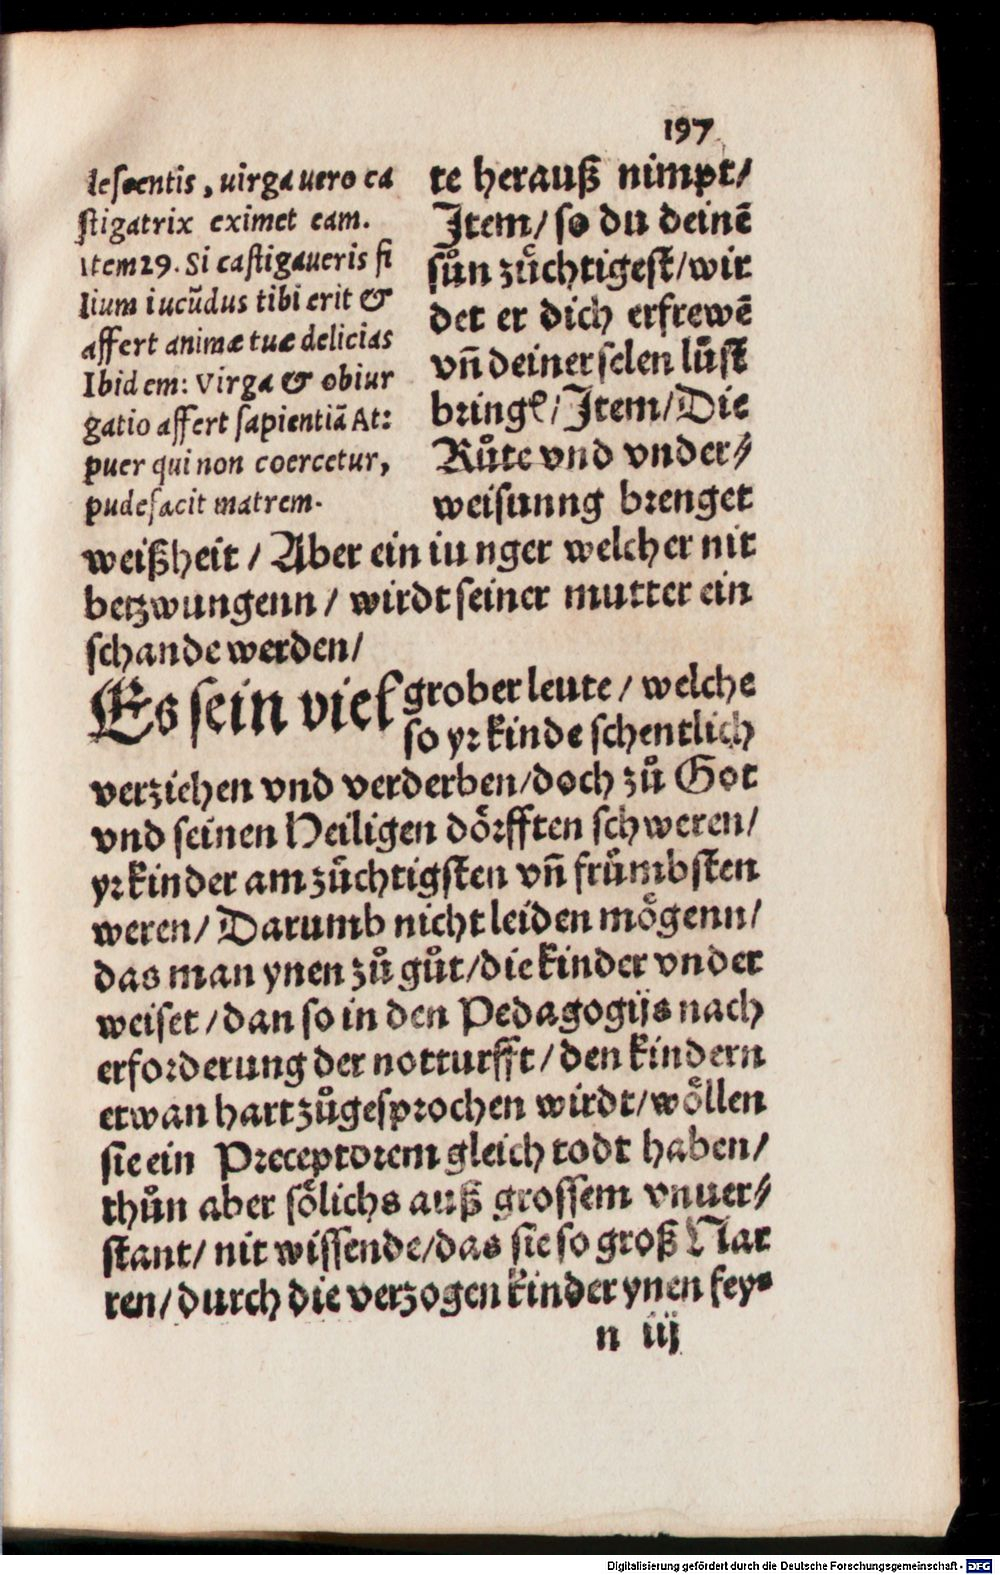 197
lescentis, uirga uero ca
stigatrix eximet eam.
Item 29. Si castigaueris fi
lium iucũdus tibi erit &
affert animæ tuæ delicias
Ibidem: Virga & obiur
gatio affert sapientiã At:
puer qui non coercetur,
pudefacit matrem.
te herauß nimpt/
Item/ so du deinẽ
sůn zůchtigest/wir
det er dich erfrewẽ
vñ deiner selen lůst
bringẽ/ Item/ Die
Růte vnd vnder⸗
weisunng brenget
weißheit / Aber ein iunger welcher nit
betzwungenn / wirdt seiner mutter ein
schande werden/
Es sein viel grober leute / welche
so yr kinde schentlich
verziehen vnd verderben/doch zů Got
vnd seinen Heiligen dőrfften schweren/
yr kinder am zůchtigsten vñ frůmbsten
weren/ Darumb nicht leiden mőgenn/
das man ynen zů gůt/die kinder vnder
weiset/dan so in den Pedagogijs nach
erforderung der notturfft/den kindern
etwan hart zůgesprochen wirdt/wőllen
sie ein Preceptorem gleich todt haben/
thůn aber sőlichs auß grossem vnuer⸗
stant/ nit wissende/das sie so groß Nar
ren/durch die verzogen kinder ynen sey⸗
n iij
Digitalisierung gefördert durch die Deutsche Forschungsgemeinschaft - DFG